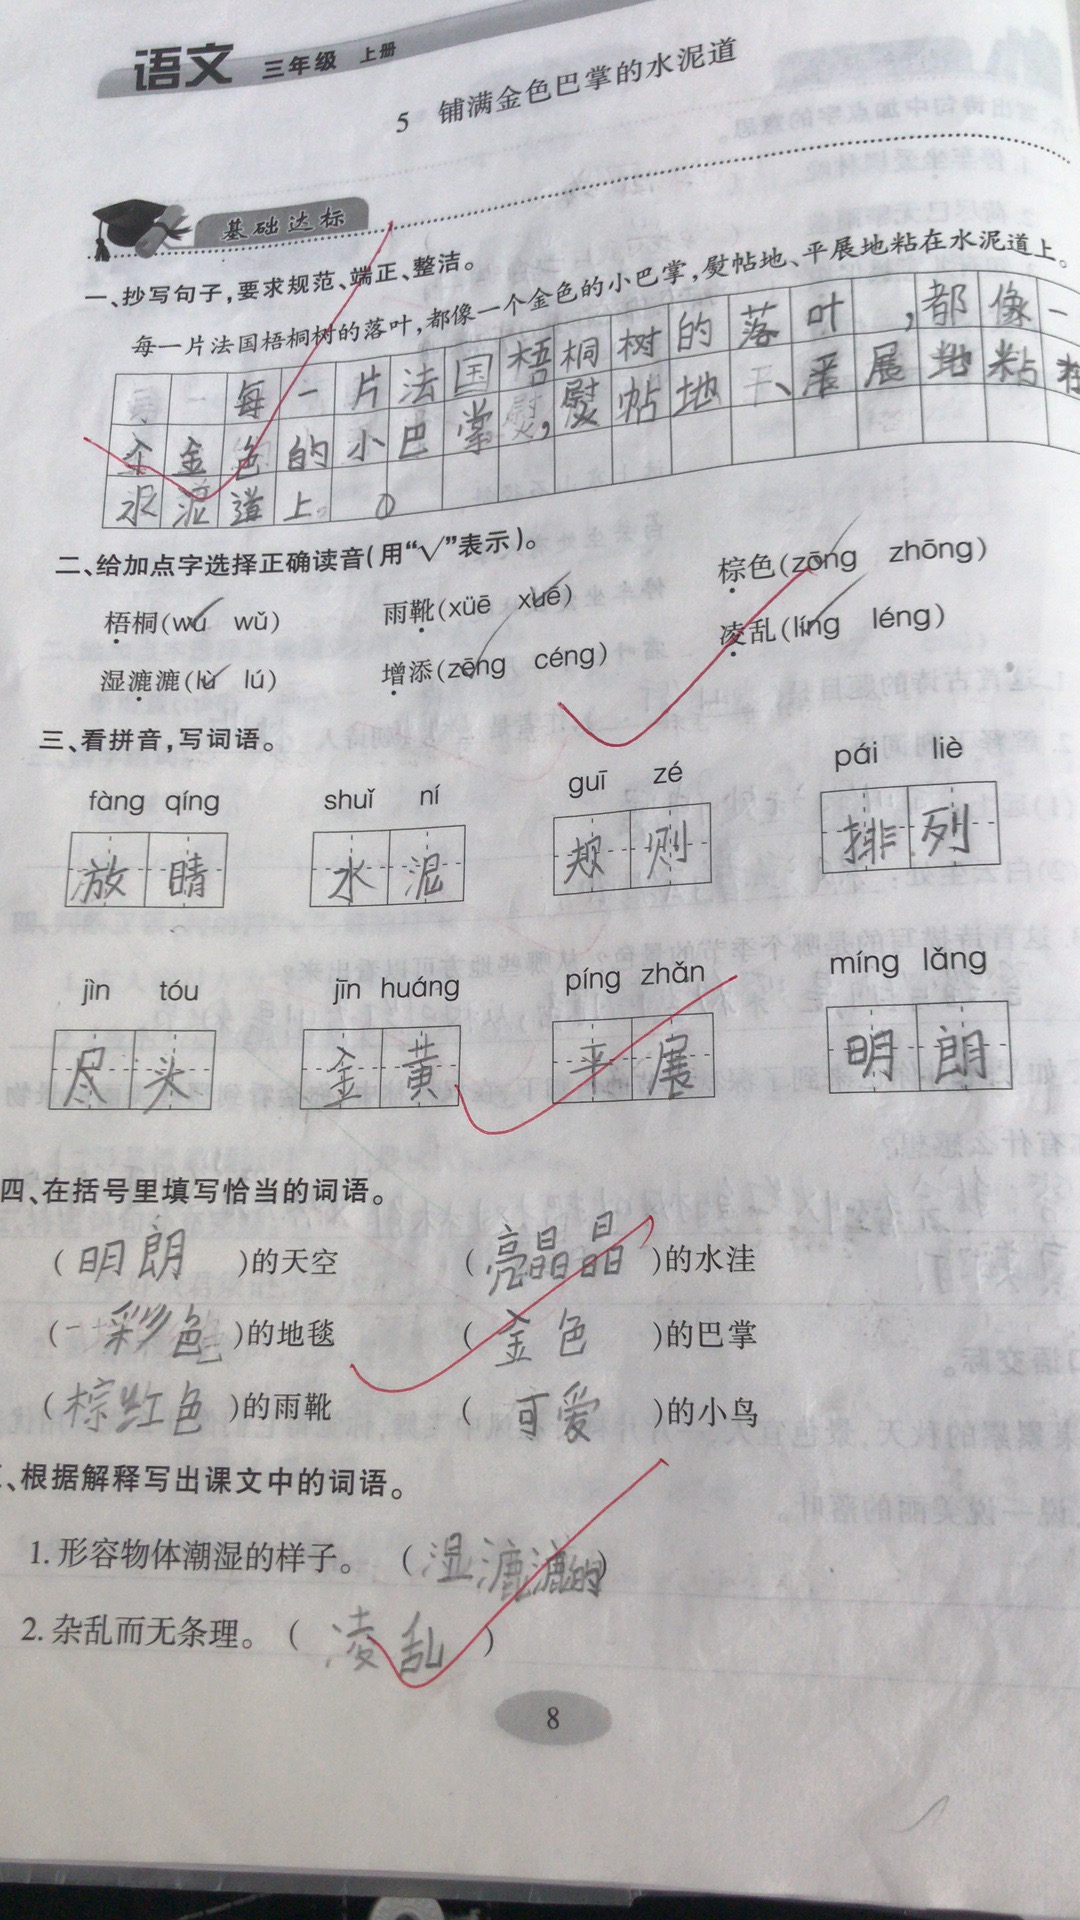 语文 三年级 上册
5 铺满金色巴掌的水泥道
基础达标
一、抄写句子,要求规范、端正、整洁。
每一片法国梧桐树的落叶,都像一个金色的小巴掌,熨帖地、平展地粘在水泥道上。
每一片法国梧桐树的落叶,都像一
个金色的小巴掌,熨帖地、平展地粘在
水泥道上。
二、给加点字选择正确读音(用“√”表示)。
梧桐(wú wǔ) 雨靴(xüē xuē) 棕色(zōng zhōng)
湿漉漉(lù lú) 增添(zēng céng) 凌乱(líng léng)
三、看拼音,写词语。
fàng qíng shuǐ ní guī zé pái liè
放晴 水泥 规则 排列
jìn tóu jīn huáng píng zhǎn míng lǎng
尽头 金黄 平展 明朗
四、在括号里填写恰当的词语。
(明朗)的天空 (亮晶晶)的水洼
(彩色)的地毯 (金色)的巴掌
(棕红色)的雨靴 (可爱)的小鸟
、根据解释写出课文中的词语。
1. 形容物体潮湿的样子。(湿漉漉的)
2. 杂乱而无条理。(凌乱)
8